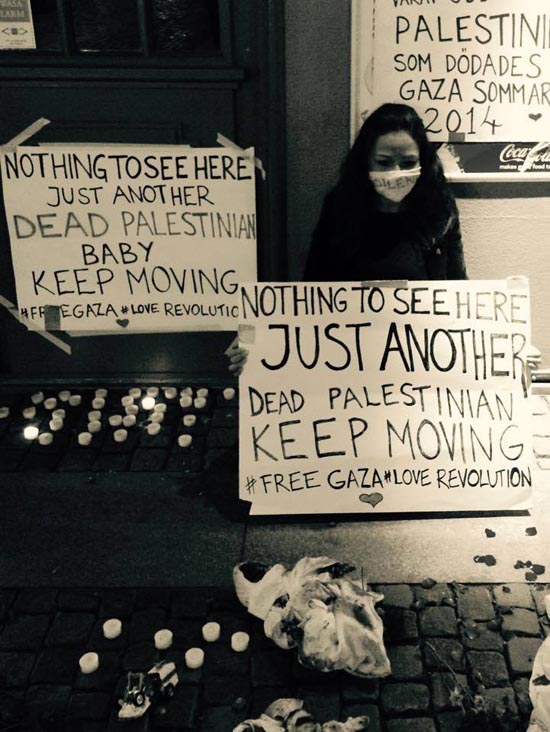 LARM
PALESTINI
SOM DÖDADES
GAZA SOMMAR
2014
Coca-Cola
NOTHING TO SEE HERE
JUST ANOTHER
DEAD PALESTINIAN
BABY
KEEP MOVING
#FREE GAZA #LOVE REVOLUTIO
NOTHING TO SEE HERE
JUST ANOTHER
DEAD PALESTINIAN
KEEP MOVING
#FREE GAZA #LOVE REVOLUTION